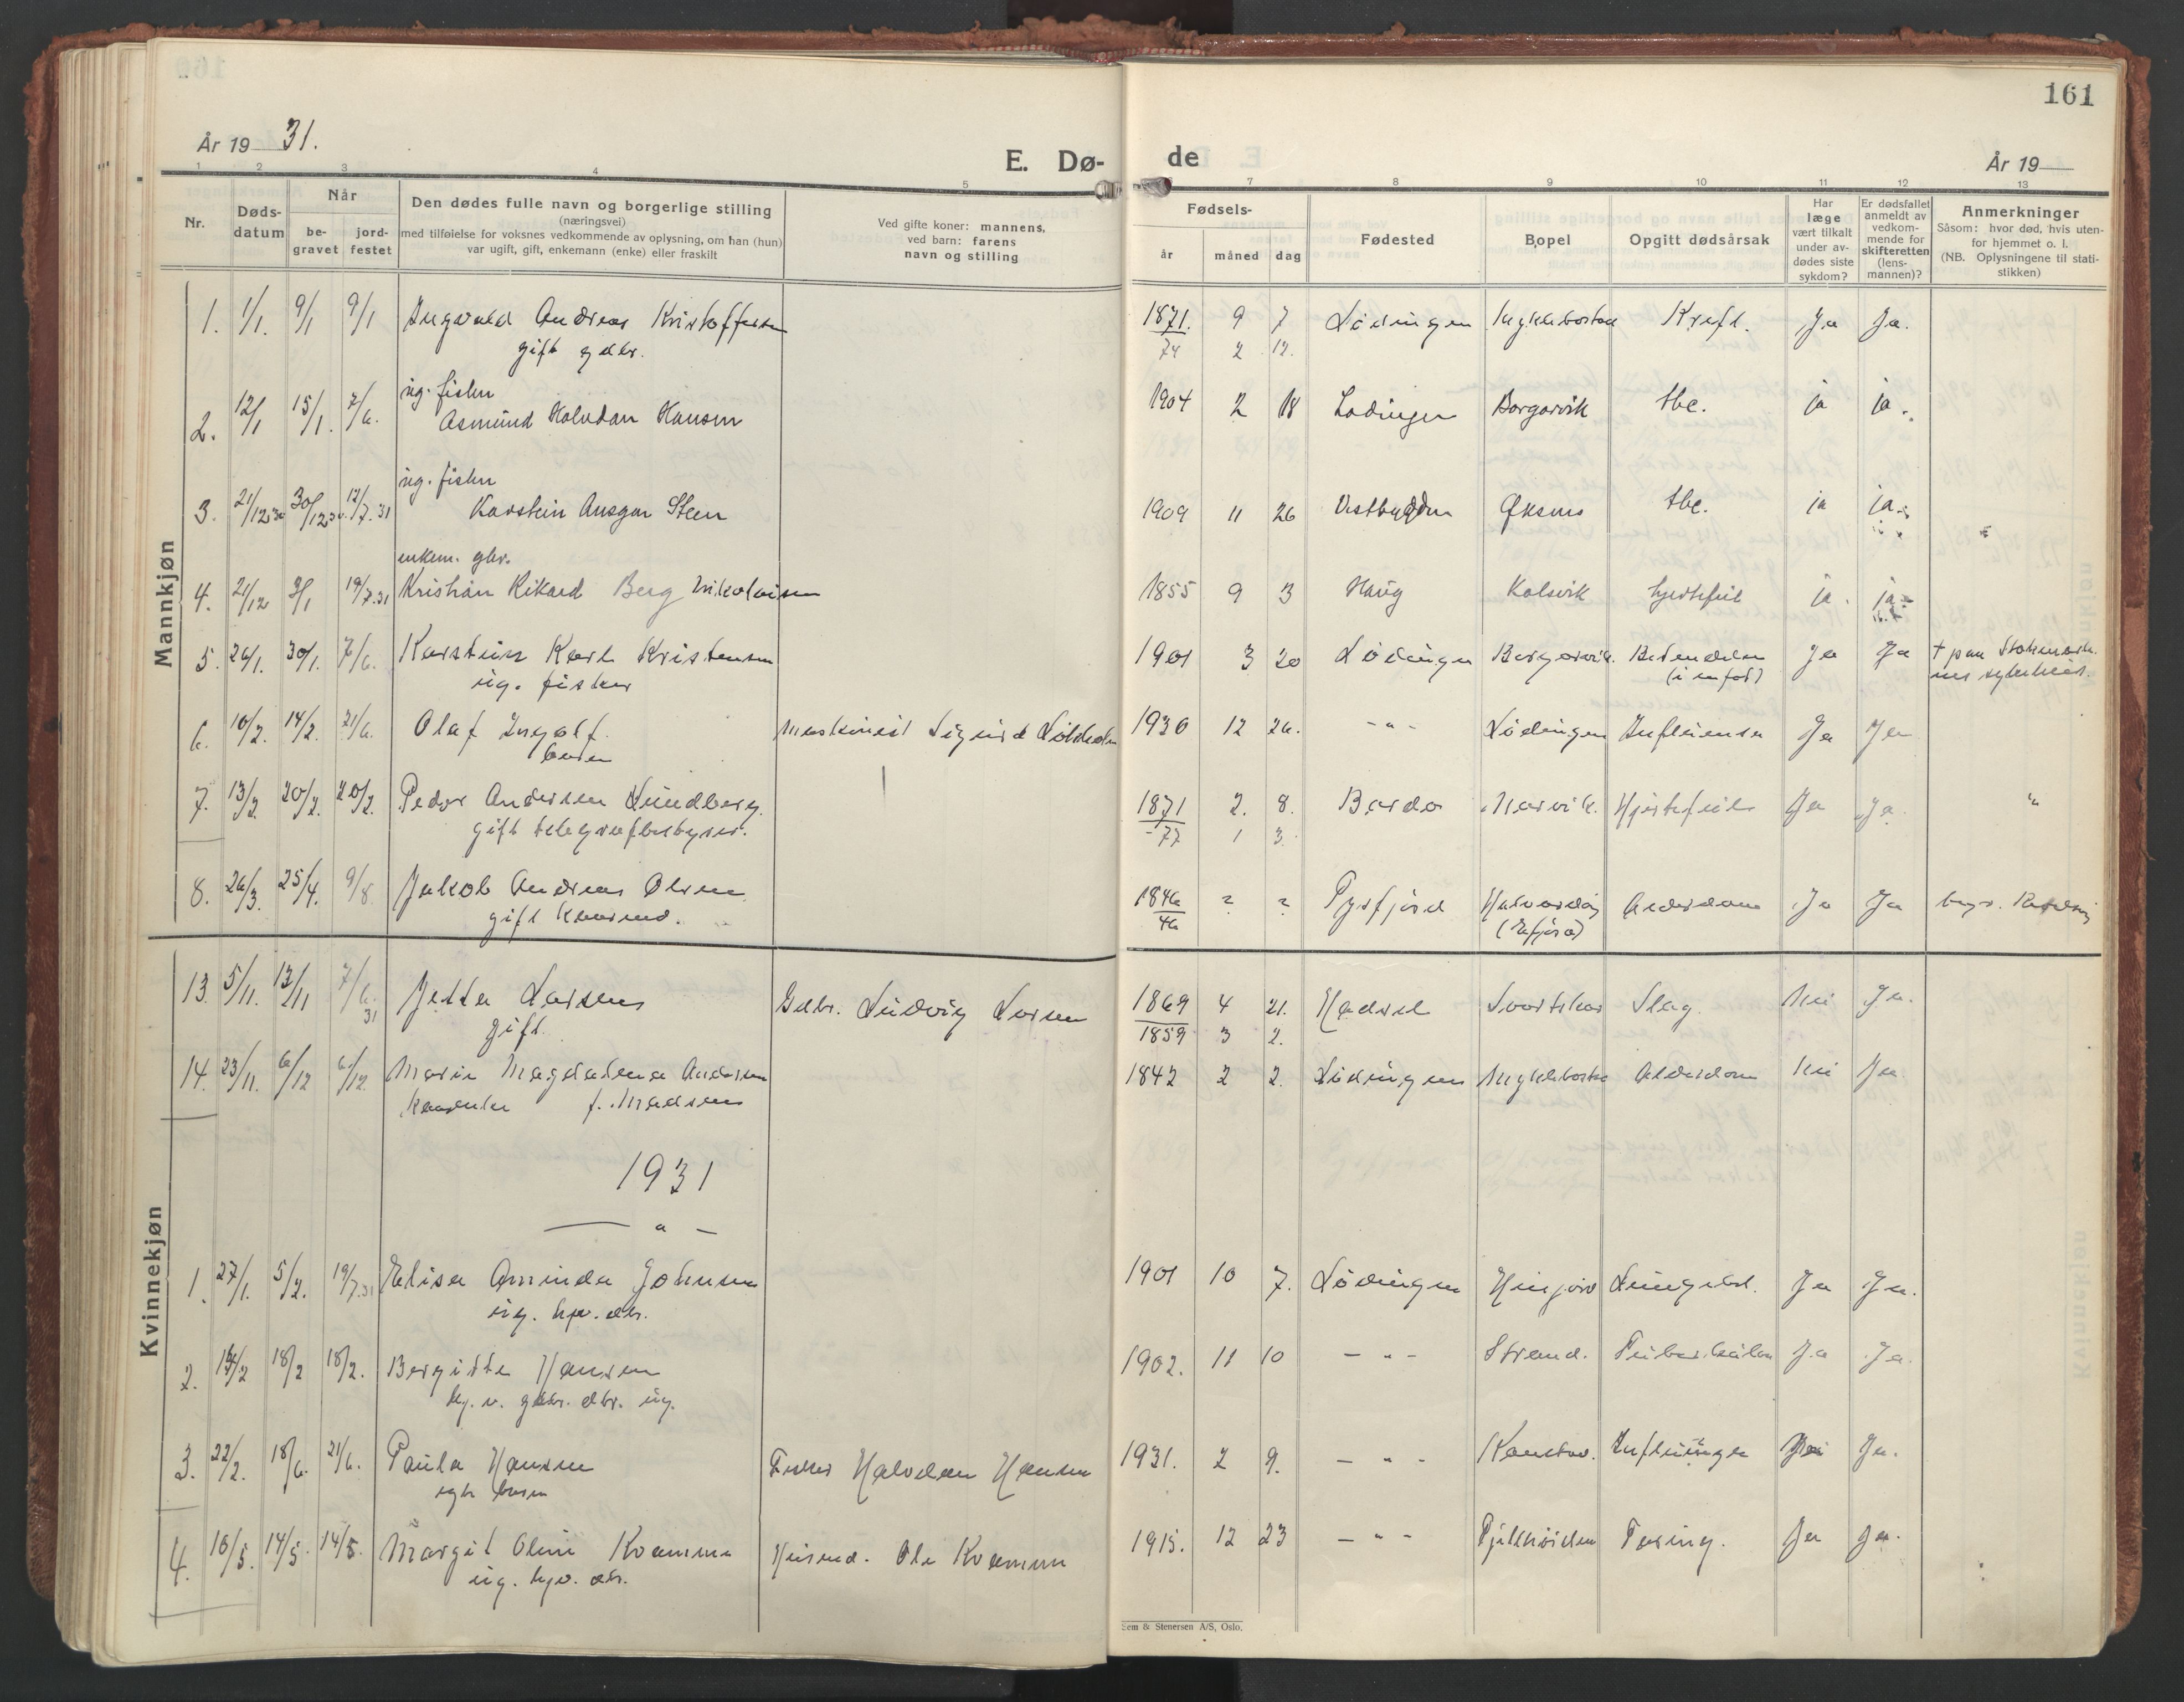 161
År 19 31.
E. Dø-
de
År 19
1 2 3 4 5 6 7 8 9 10 11 12 13
Nr.
Døds-
datum
Når
be-
gravet
jord-
festet
Den dødes fulle navn og borgerlige stilling
(næringsvei)
med tilføielse for voksnes vedkommende av oplysning, om han (hun)
var ugift, gift, enkemann (enke) eller fraskilt
Ved gifte koner: mannens,
ved barn: farens
navn og stilling
Fødsels-
år måned dag
Fødested
Bopel
Opgitt dødsårsak
Har
læge
vært tilkalt
under av-
dødes siste
sykdom?
Er dødsfallet
anmeldt av
vedkom-
mende for
skifteretten
(lens-
mannen)?
Anmerkninger
Såsom: hvor død, hvis uten-
for hjemmet o. l.
(NB. Oplysningene til stati-
stikken)
Mannkjøn
1. 1/1. 9/1 9/1 Ingvald Andreas Kristoffersen 1871. 9 7 Lødingen Kreft. Ja Ja.
gift gdbr. 74 2 12.
ug. fisker
2. 12/1 15/1. 7/6. Asmund Halvdan Hansen 1904 2 18 Lødingen Borgarvik tbc. ja ja.
ug. fisker
3. 21/12 30 30/12 30. 12/7.31 Karstein Ansgar Steen 1909 11 26 Vestbygden Øksnes tbc. ja ja.
enkem. gbr.
4. 21/12 3/1 19/7.31 Kristian Rikard Berg Nikolaisen 1855 9 3 Haug Kalsvik hjertefeil ja ja
5. 26/1. 30/1. 7/6. Karstein Karl Kristensen 1901 3 20 Lødingen Borgarvik. Ja Ja † paa Stokmark-
ug. fisker nes sykehus.
6. 10/2. 14/2. 21/6. Olaf Ingolf. Maskinist Sigurd 1930 12 26. - " - Lødingen Influensa Ja Ja
7. 13/2. 20/2. 20/2. Peder Andersen Lundberg. 1871 2. 8. Bardo Narvik. Hjertefeil Ja Ja. "
gift telegrafbestyrer. -77 1 3.
8. 26/3. 25/4. 9/8. Jakob Andreas Olsen 1846 ? ? Tysfjord Alderdom Ja Ja
gift kaarmd. 46 (Efjord)
Kvinnekjøn
13. 5/11. 13/11 7/6. 31 Jetta Larsens Gdbr. Ludvig Larsen 1869 4 21. Hadsel Svartskar Slag. Nei Ja.
gift. 1859 3 2.
14. 23/11. 6/12 6/12. Marie Magdalena Andersen 1842 2 2. Lødingen Alderdom Nei Ja.
f. Madsen
1931
— " —
1. 27/1. 5/2. 19/7.31 Elisa Aminda Johnsen 1901 10 7. Lødingen Hinjord Ja Ja.
ug. hjv. dtr.
2. 14/2 18/2 18/2. Bergitte Hansen 1902. 11 10 - " - Strand. Ja Ja.
hj. v. gdbr. dtr. ug.
3. 22/2. 18/6. 21/6. Paula Hansen Fisker Halvdan Hansen 1931. 2 9. - " - Kanstad. Nei Ja.
4. 10/5. 14/5. 14/5. Margit Oline Kvamme Husmd. Ole Kvamme 1915. 12 23 - " - Tæring. Ja Ja.
ug. hjv. dtr.
Sem & Stenersen A/S, Oslo.